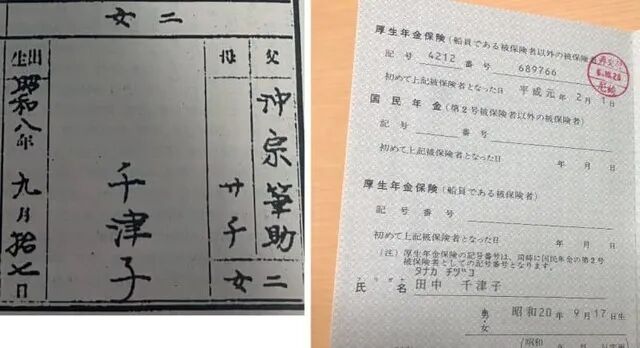 二女
父 沖宗筆助
二女
母 サ子
千津子
出生 昭和八年 九月拾七日
厚生年金保険(船員である被保険者以外の被保険者
記号 4212 番号 689766
初めて上記被保険者となった日 平成元年 2月 1日
国民年金(第2号被保険者以外の被保険者)
記号 番号
初めて上記被保険者となった日 年 月 日
厚生年金保険(船員である被保険者)
記号 番号
初めて上記被保険者となった日 年 月 日
(注)厚生年金保険の記号番号は、同時に国民年金の第2号
被保険者としての記号番号となります。
タナカ チツ"コ
氏名 田中 千津子
男・女 昭和20年 9月17日生